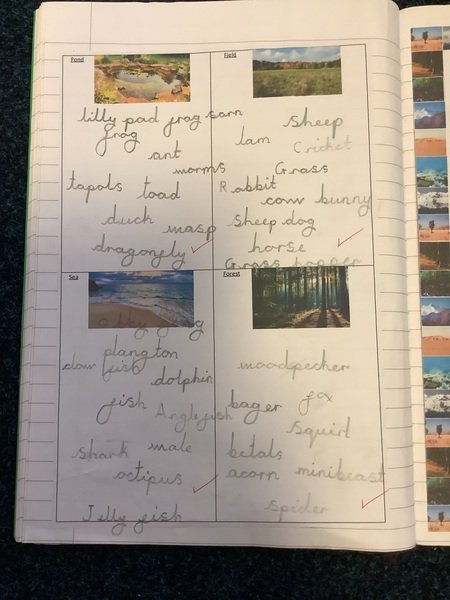 Pond
lilly pad frog sarn
frog
ant
worms
tapols toad
duck wasp
dragonfly
Field
sheep
lam Cricket
Grass
Rabbit
cow bunny
sheep dog
horse
Grass hopper
Sea
plangton
clown fish
dolphin
fish Angle fish
shark wale
octipus
Jelly fish
Forest
woodpecker
bager fox
squirl
betals
acorn minibeast
spider